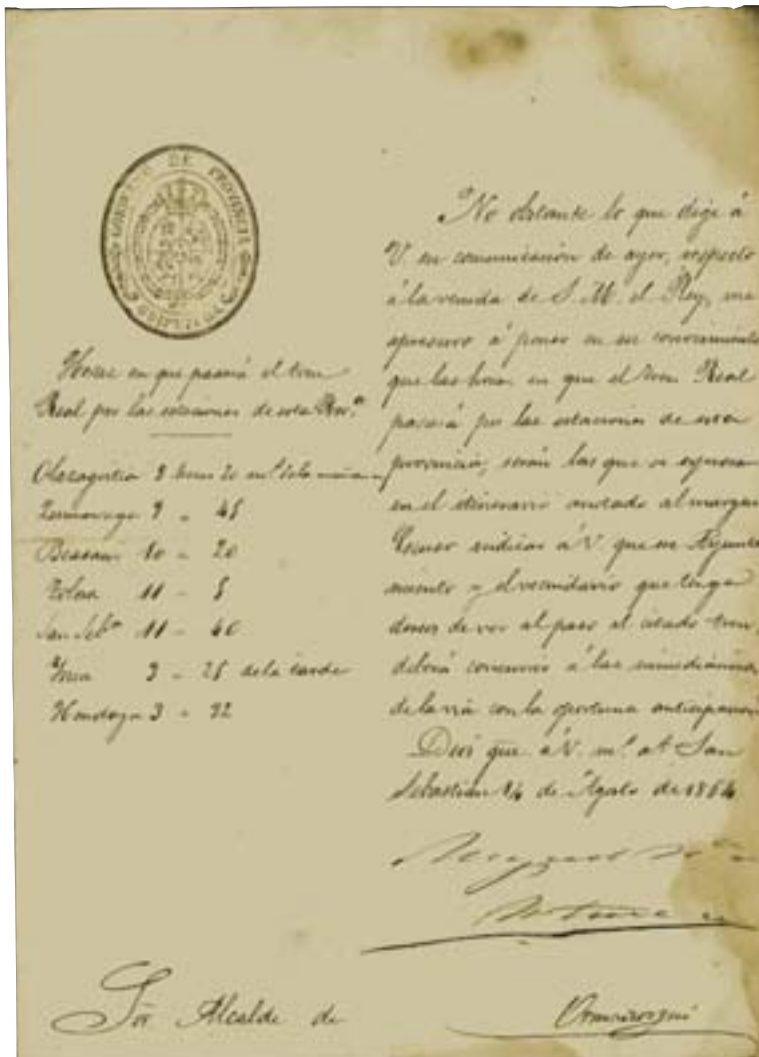 GOBIERNO DE PROVINCIA
GUIPUZCOA
Horas en que pasará el tren
Real por las estaciones de esta Prov.ª
Olazagutia 9 horas 20 m.s de la mañana
Zumarraga 9 - 45
Beasain 10 - 20
Tolosa 11 - 5
San Seb.n 11 - 40
Irun 3 - 25 de la tarde
Hendaya 3 - 32
No obstante lo que dige á
V en comunicacion de ayer, respecto
á la venida de S. M. el Rey, me
apresuro á poner en su conocimiento
que las horas en que el tren Real
pasará por las estaciones de esta
provincia, serán las que se espresan
en el itinerario anotado al margen
Escuso indicar á V. que ese Ayunta
miento y el vecindario que tenga
deseos de ver al paso el citado tren,
deberá concurrir á las inmediaciones
de la via con la oportuna anticipacion
Dios gue. á V. m.s a.s San
Sebastian 14 de Agosto de 1864
Sór Alcalde de
Ormaiztegui